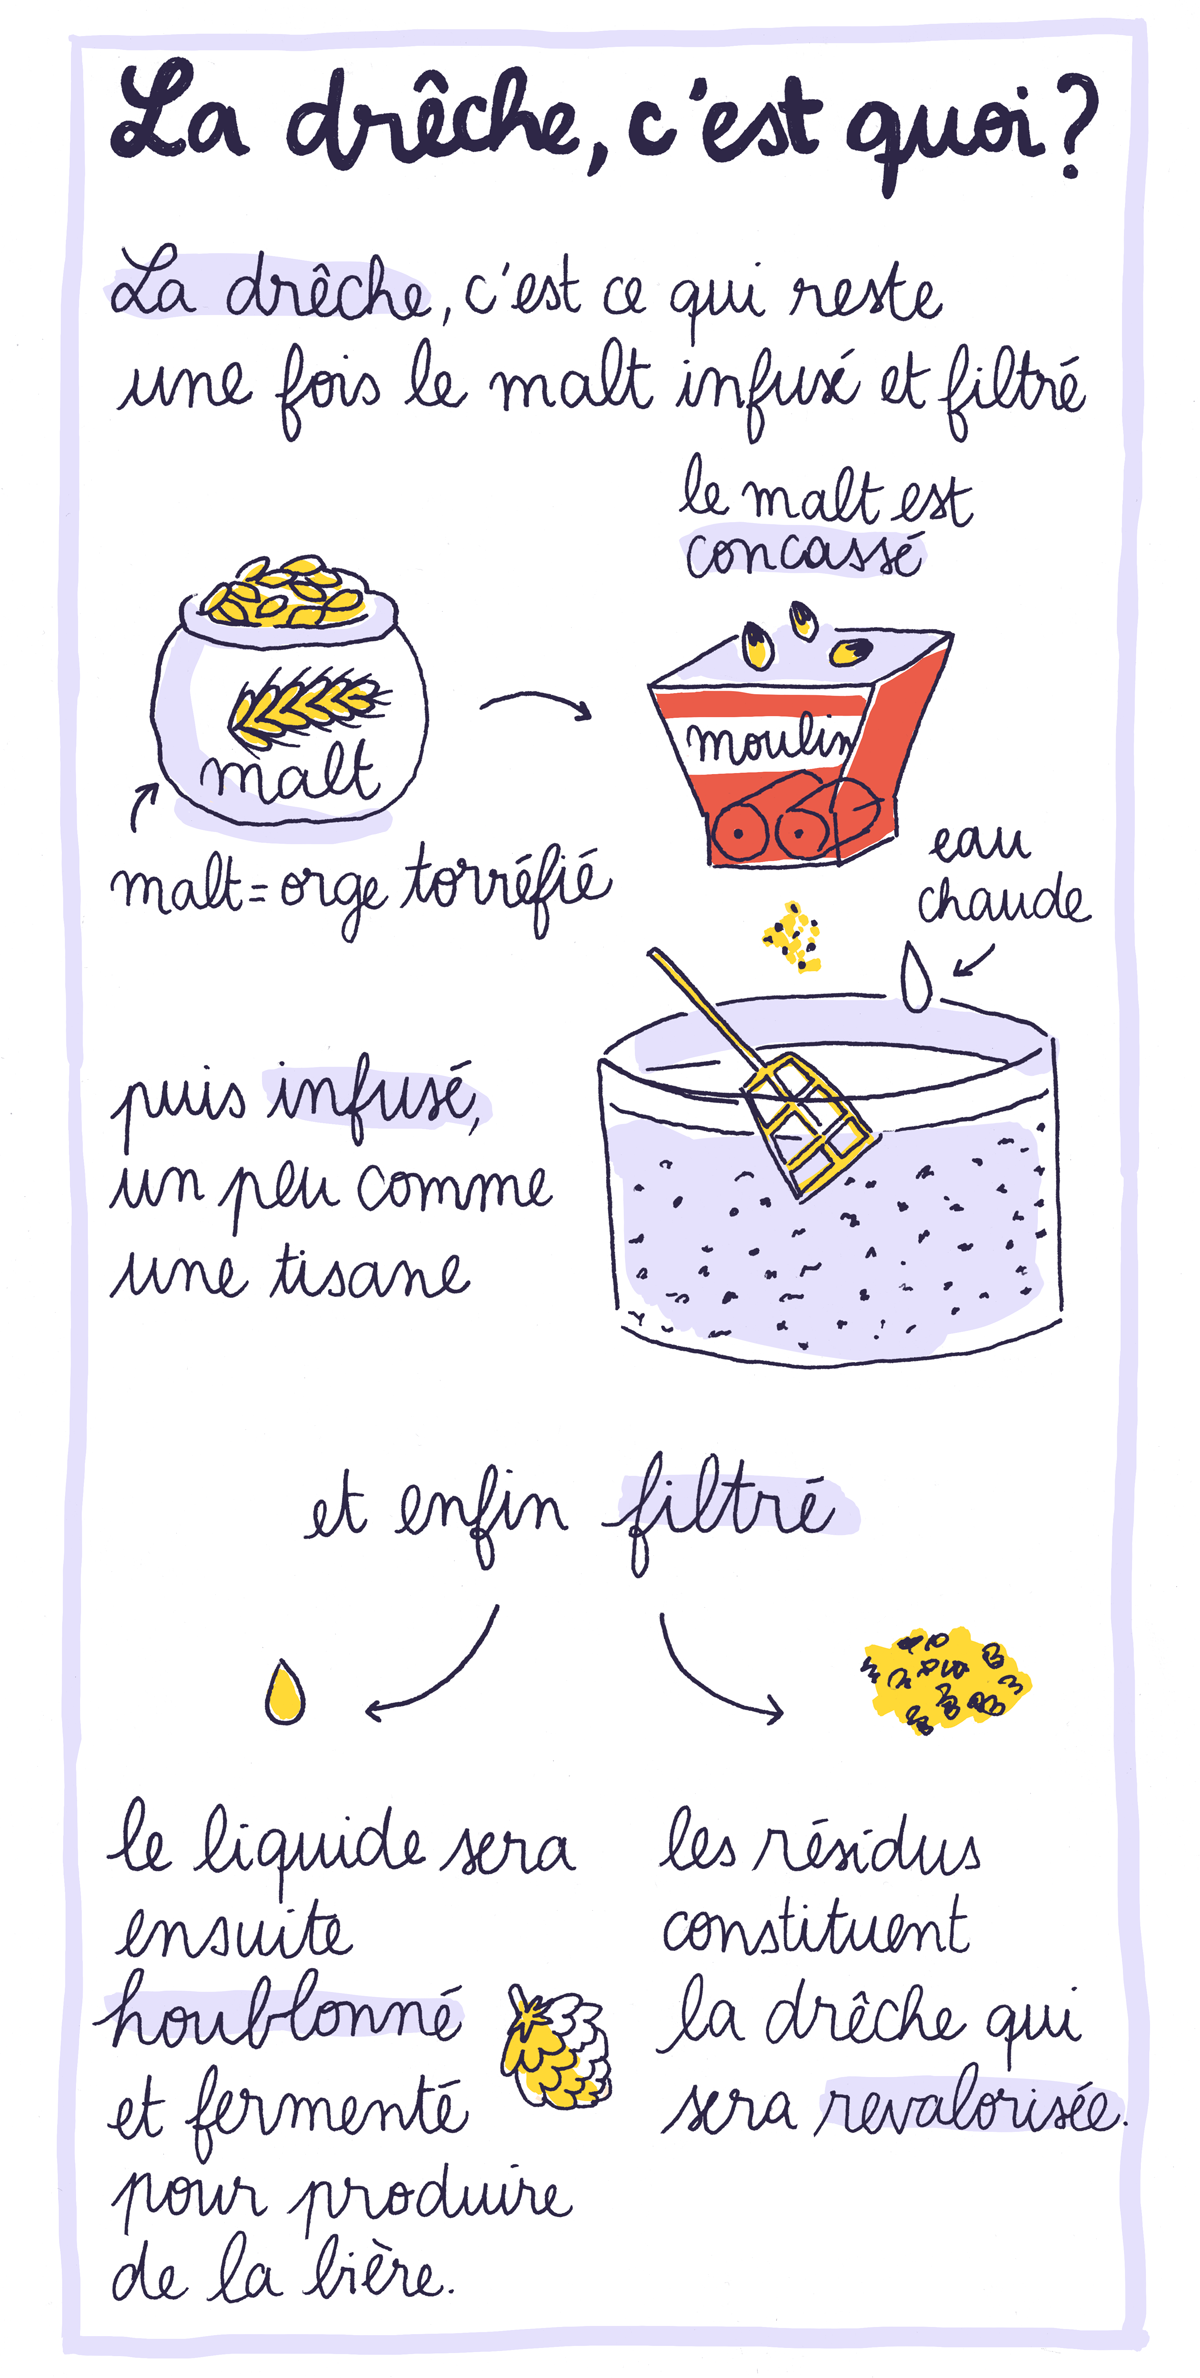 La drêche, c'est quoi ?
La drêche, c'est ce qui reste
une fois le malt infusé et filtré
le malt est
concassé
malt
moulin
malt = orge torréfié
eau
chaude
puis infusé,
un peu comme
une tisane
et enfin filtré
le liquide sera
ensuite
houblonné
et fermenté
pour produire
de la bière.
les résidus
constituent
la drêche qui
sera revalorisée.